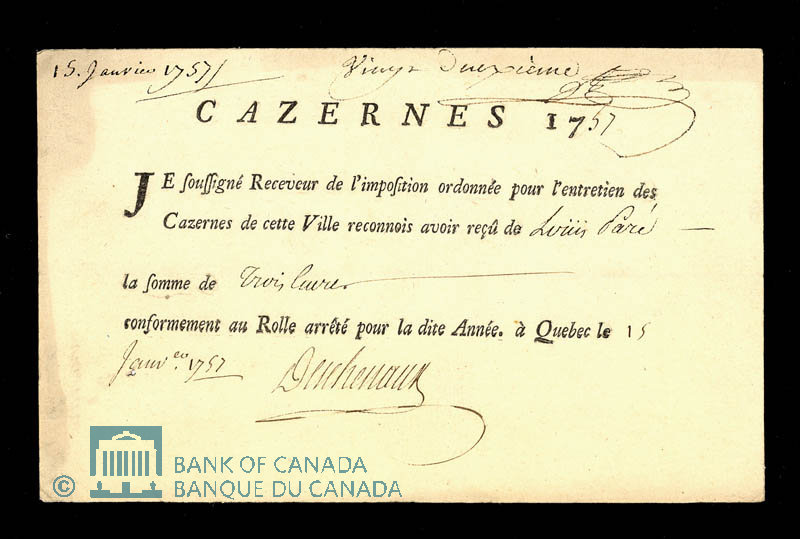 15. Janvier 1757 Vingt Deuxieme
CAZERNES 1757
JE soussigné Receveur de l'imposition ordonnée pour l'entretien des
Cazernes de cette Ville reconnois avoir reçû de Loüis Paré
la somme de Trois Livres
conformement au Rolle arrêté pour la dite Année. à Quebec le 15
Janv.er 1757 Deschenaux
BANK OF CANADA
© BANQUE DU CANADA